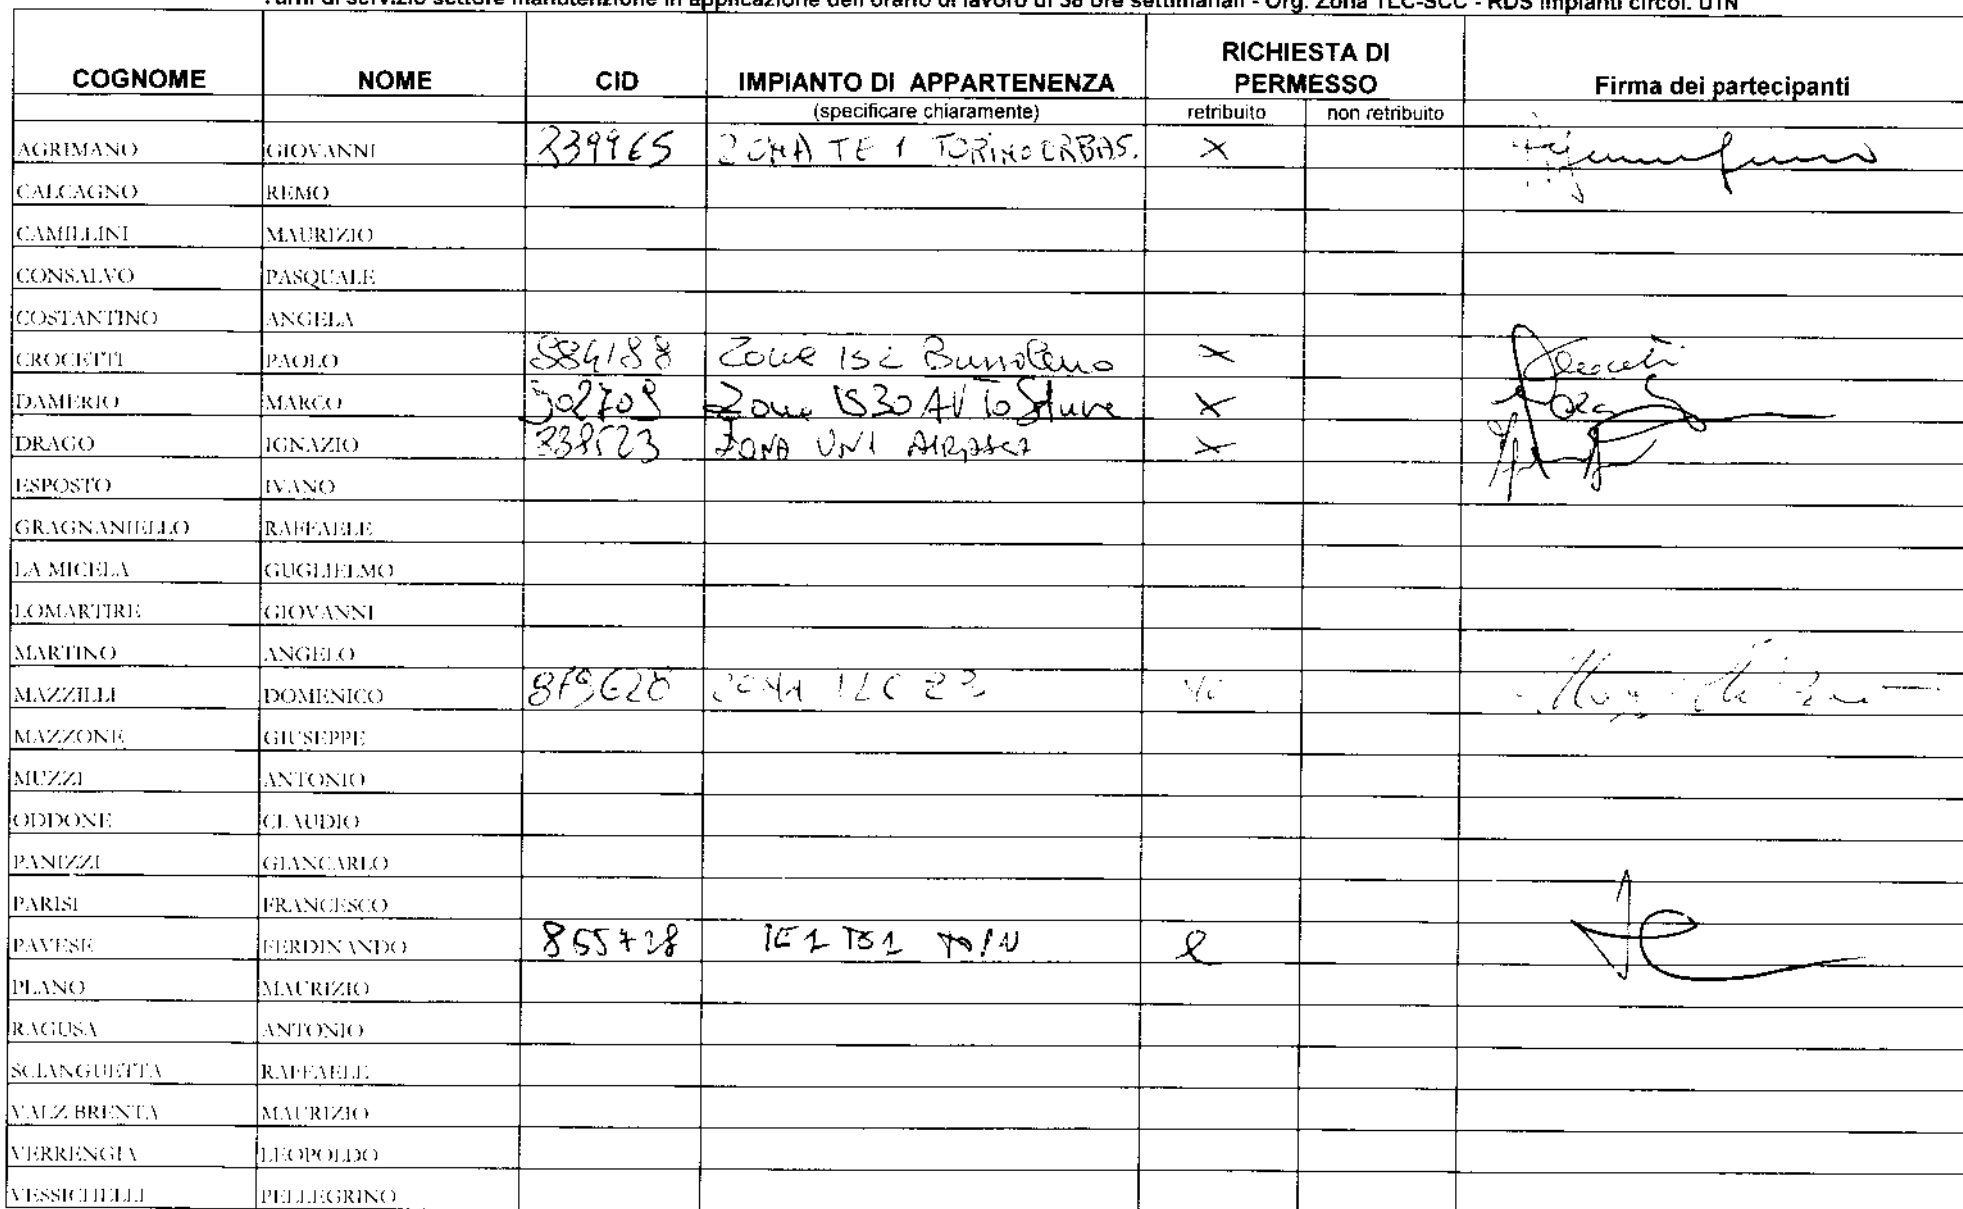 Turni di servizio settore manutenzione in applicazione dell'orario di lavoro di 38 ore settimanali - Org. Zona TLC-SCC - RDS Impianti circol. UTN
COGNOME NOME CID IMPIANTO DI APPARTENENZA RICHIESTA DI PERMESSO Firma dei partecipanti
(specificare chiaramente) retribuito non retribuito
AGRIMANO GIOVANNI 239965 ZONA TE 1 TORINO ORBAS. X
CALCAGNO REMO
CAMILLINI MAURIZIO
CONSALVO PASQUALE
COSTANTINO ANGELA
CROCETTI PAOLO 584188 Zona Bussoleno X
DAMERIO MARCO 902709 Zona IS30 AV To Stura X
DRAGO IGNAZIO ZONA UNI AIRASCA X
ESPOSTO IVANO
GRAGNANIELLO RAFFAELE
LA MICELA GUGLIELMO
LOMARTIRE GIOVANNI
MARTINO ANGELO
MAZZILLI DOMENICO ZONA
MAZZONE GIUSEPPE
MUZZI ANTONIO
ODDONE CLAUDIO
PANIZZI GIANCARLO
PARISI FRANCESCO
PAVESE FERDINANDO 865728
PLANO MAURIZIO
RAGUSA ANTONIO
SCIANGUETTA RAFFAELE
VALZ BRENTA MAURIZIO
VERRENGIA LEOPOLDO
VESSICHELLI PELLEGRINO